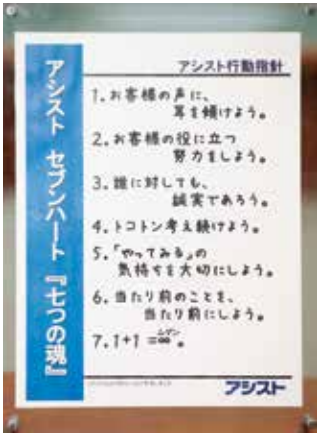 アシスト セブンハート『七つの魂』
アシスト行動指針
1.お客様の声に、
耳を傾けよう。
2.お客様の役に立つ
努力をしよう。
3.誰に対しても、
誠実であろう。
4.トコトン考え続けよう。
5.「やってみる」の
気持ちを大切にしよう。
6.当たり前のことを、
当たり前にしよう。
7.1+1=∞。
ムゲン
アシスト